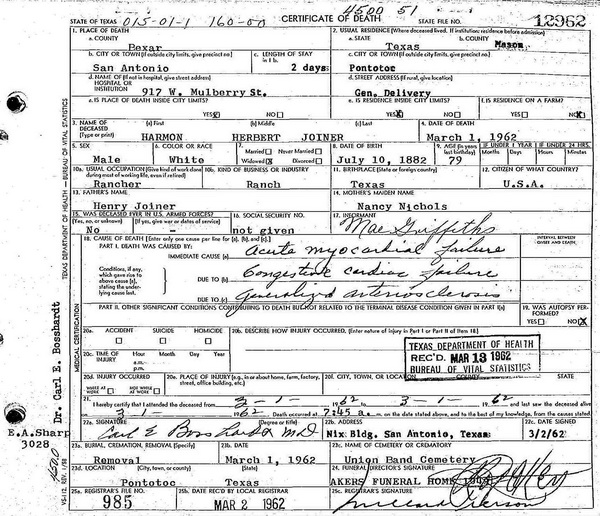 4500 51
STATE OF TEXAS 015-01-1 160-00 CERTIFICATE OF DEATH STATE FILE NO. 12962
1. PLACE OF DEATH
a. COUNTY
Bexar
2. USUAL RESIDENCE (Where deceased lived. If institution: residence before admission)
a. STATE
Texas
b. COUNTY
Mason
b. CITY OR TOWN (If outside city limits, give precinct no.)
San Antonio
c. LENGTH OF STAY in 1 b.
2 days
c. CITY OR TOWN (If outside city limits, give precinct no.)
Pontotoc
d. NAME OF (If not in hospital, give street address)
HOSPITAL OR INSTITUTION
917 W. Mulberry St.
d. STREET ADDRESS (If rural, give location)
Gen. Delivery
e. IS PLACE OF DEATH INSIDE CITY LIMITS?
YES X NO
e. IS RESIDENCE INSIDE CITY LIMITS?
YES NO
f. IS RESIDENCE ON A FARM?
YES NO X
3. NAME OF DECEASED (Type or print)
(a) First (b) Middle (c) Last
HARMON HERBERT JOINER
4. DATE OF DEATH
March 1, 1962
5. SEX
Male
6. COLOR OR RACE
White
7. Married Never Married
Widowed X Divorced
8. DATE OF BIRTH
July 10, 1882
9. AGE (In years last birthday)
79
IF UNDER 1 YEAR
Months Days
IF UNDER 24 HRS.
Hours Minutes
10a. USUAL OCCUPATION (Give kind of work done during most of working life, even if retired)
Rancher
10b. KIND OF BUSINESS OR INDUSTRY
Ranch
11. BIRTHPLACE (State or foreign country)
Texas
12. CITIZEN OF WHAT COUNTRY?
U.S.A.
13. FATHER'S NAME
Henry Joiner
14. MOTHER'S MAIDEN NAME
Nancy Nichols
15. WAS DECEASED EVER IN U.S. ARMED FORCES?
(Yes, no, or unknown) (If yes, give war or dates of service)
No -
16. SOCIAL SECURITY NO.
not given
17. INFORMANT
Mae Griffiths
18. CAUSE OF DEATH [Enter only one cause per line for (a), (b), and (c).]
INTERVAL BETWEEN ONSET AND DEATH
PART I. DEATH WAS CAUSED BY:
IMMEDIATE CAUSE (a) Acute myocardial failure
Conditions, if any, which gave rise to above cause (a), stating the underlying cause last.
DUE TO (b) Congestive cardiac failure
DUE TO (c) Generalized arteriosclerosis
PART II. OTHER SIGNIFICANT CONDITIONS CONTRIBUTING TO DEATH BUT NOT RELATED TO THE TERMINAL DISEASE CONDITION GIVEN IN PART I(a)
19. WAS AUTOPSY PERFORMED?
YES NO X
20a. ACCIDENT SUICIDE HOMICIDE
20b. DESCRIBE HOW INJURY OCCURRED. (Enter nature of injury in Part I or Part II of item 18.)
20c. TIME OF INJURY Hour Month Day Year
a.m.
p.m.
TEXAS DEPARTMENT OF HEALTH
REC'D. MAR 13 1962
BUREAU OF VITAL STATISTICS
20d. INJURY OCCURRED
WHILE AT WORK NOT WHILE AT WORK
20e. PLACE OF INJURY (e.g., in or about home, farm, factory, street, office building, etc.)
20f. CITY, TOWN, OR LOCATION COUNTY STATE
21. I hereby certify that I attended the deceased from 3-1- 1962 to 3-1- 1962 and last saw the deceased alive
on 3-1- 1962. Death occurred at 7:45 a.m. on the date stated above, and to the best of my knowledge, from the causes stated.
22a. SIGNATURE (Degree or title)
Carl E Bosshardt M.D
22b. ADDRESS
Nix Bldg. San Antonio, Texas
22c. DATE SIGNED
3/2/62
23a. BURIAL, CREMATION, REMOVAL (Specify)
Removal
23b. DATE
March 1, 1962
23c. NAME OF CEMETERY OR CREMATORY
Union Band Cemetery
23d. LOCATION (City, town, or county) (State)
Pontotoc Texas
24. FUNERAL DIRECTOR'S SIGNATURE
AKERS FUNERAL HOME
25a. REGISTRAR'S FILE NO.
985
25b. DATE REC'D BY LOCAL REGISTRAR
MAR 2 1962
25c. REGISTRAR'S SIGNATURE
TEXAS DEPARTMENT OF HEALTH — BUREAU OF VITAL STATISTICS
MEDICAL CERTIFICATION
Dr. Carl E. Bosshardt
E.A. Sharp
3028